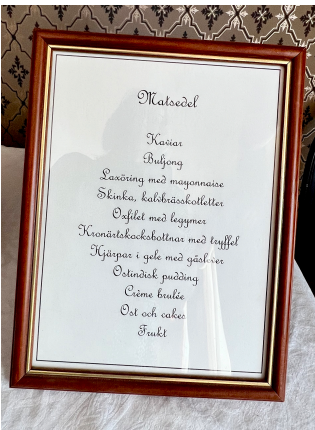 Matsedel
Kaviar
Buljong
Laxöring med mayonnaise
Skinka, kalvbrässkotletter
Oxfilet med legymer
Kronärtskocksbottnar med tryffel
Hjärpar i gele med gåslever
Ostindisk pudding
Crème brulée
Ost och cakes
Frukt